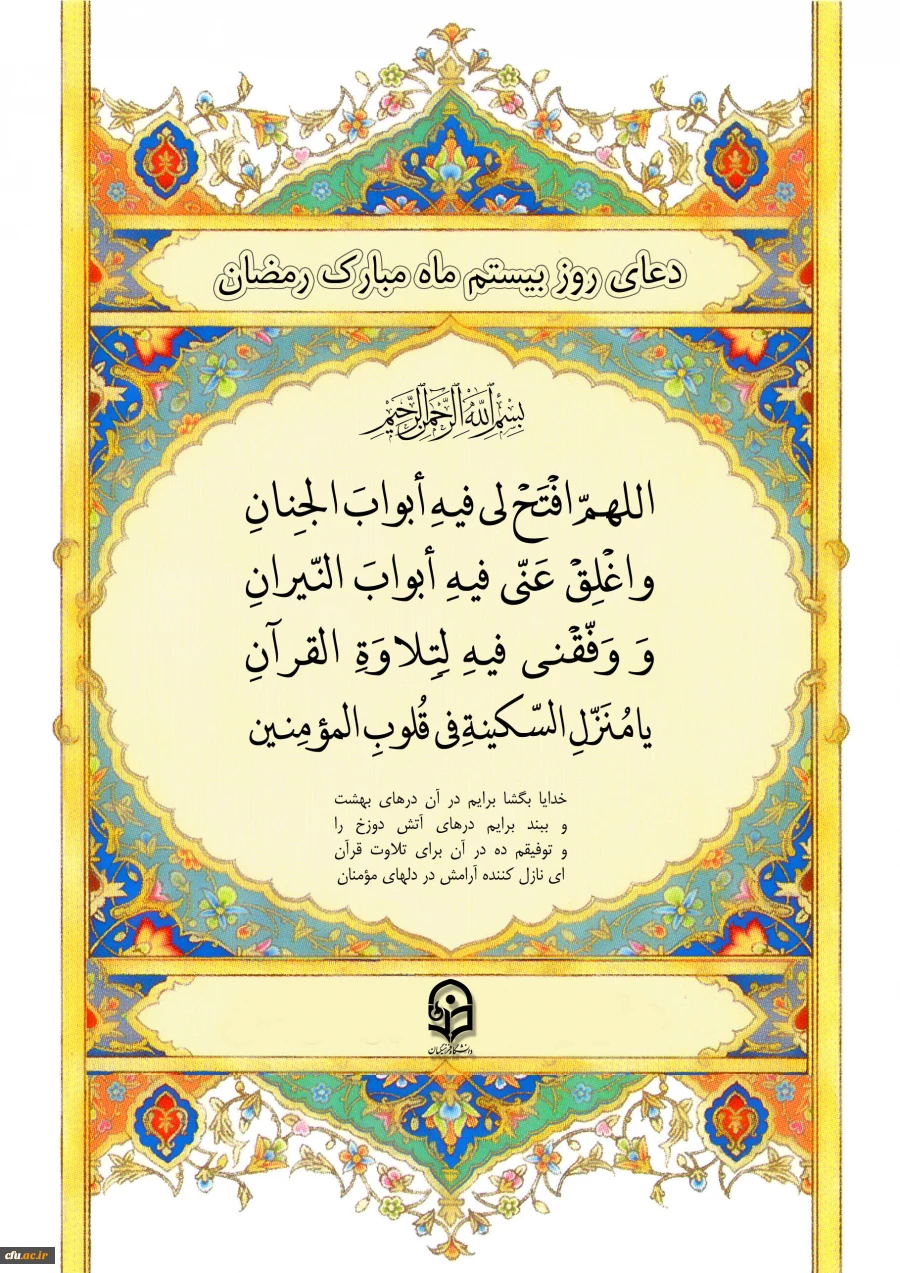 دعای روز بیستم ماه مبارک رمضان
بِسْمِ اللَّهِ الرَّحْمَٰنِ الرَّحِيمِ
اللهمّ افْتَحْ لی فیهِ أبوابَ الجِنانِ
واغْلِقْ عَنّی فیهِ أبوابَ النّیرانِ
وَ وَفّقْنی فیهِ لِتِلاوَةِ القرآنِ
یا مُنَزّلِ السّکینةِ فی قُلوبِ المؤمِنین
خدایا بگشا برایم در آن درهای بهشت
و ببند برایم درهای آتش دوزخ را
و توفیقم ده در آن برای تلاوت قرآن
ای نازل کننده آرامش در دلهای مؤمنان
دانشگاه فرهنگیان
cfu.ac.ir